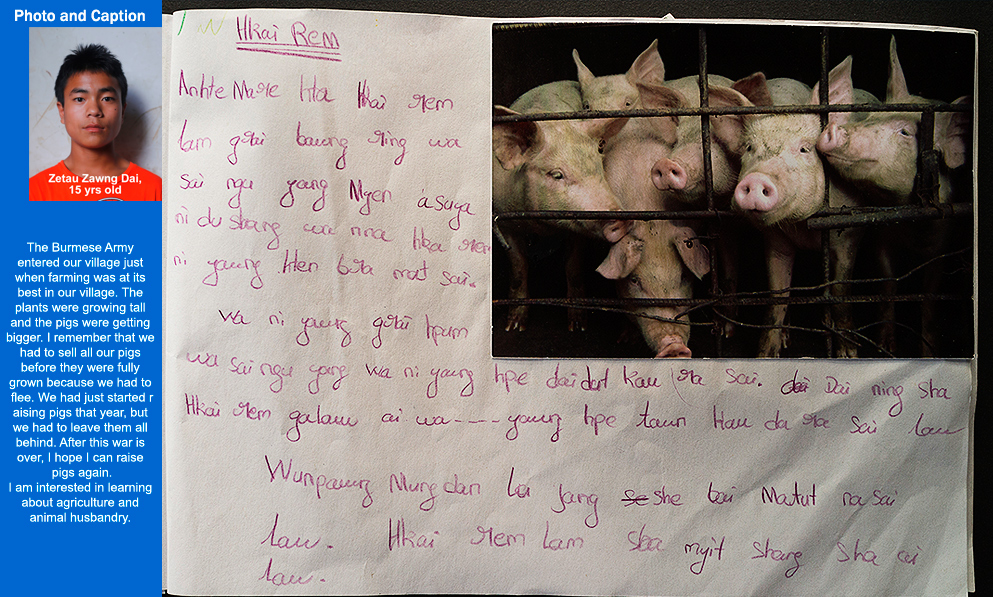 Photo and Caption
Zetau Zawng Dai,
15 yrs old
The Burmese Army
entered our village just
when farming was at its
best in our village. The
plants were growing tall
and the pigs were getting
bigger. I remember that we
had to sell all our pigs
before they were fully
grown because we had to
flee. We had just started r
aising pigs that year, but
we had to leave them all
behind. After this war is
over, I hope I can raise
pigs again.
I am interested in learning
about agriculture and
animal husbandry.
Hkai Rem
Anhte Mare Hta Hkai rem
lam grai baung ring wa
sai ngu yang Myen asuya
ni du shang wa nna hka rem
ni yawng Hten bra mat sai.
Wa ni yawng grai hpum
wa sai ngu yang wa ni yawng hpe dai dut kau ra sai. Dai ning sha
Hkai rem galaw ai wa---- yawng hpe tawn Hau da ra sai law
Wunpawng Mungdan lu jang she bai Matut na sai
law. Hkai rem lam sha myit shang sha ai
law.